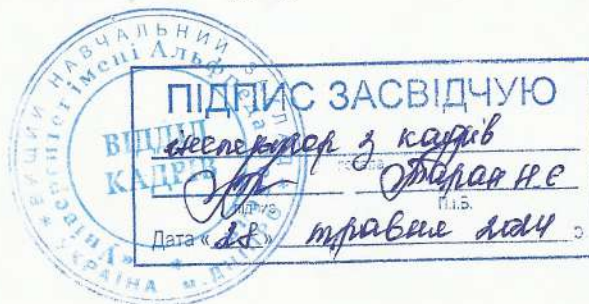 ВИЩИЙ НАВЧАЛЬНИЙ ЗАКЛАД
Університет імені Альфреда
УКРАЇНА м.
ВІДДІЛ
КАДРІВ
ПІДПИС ЗАСВІДЧУЮ
інспектор з кадрів
посада
Таран Н.Є
підпис П.І.Б.
Дата « 28 » травня 2024